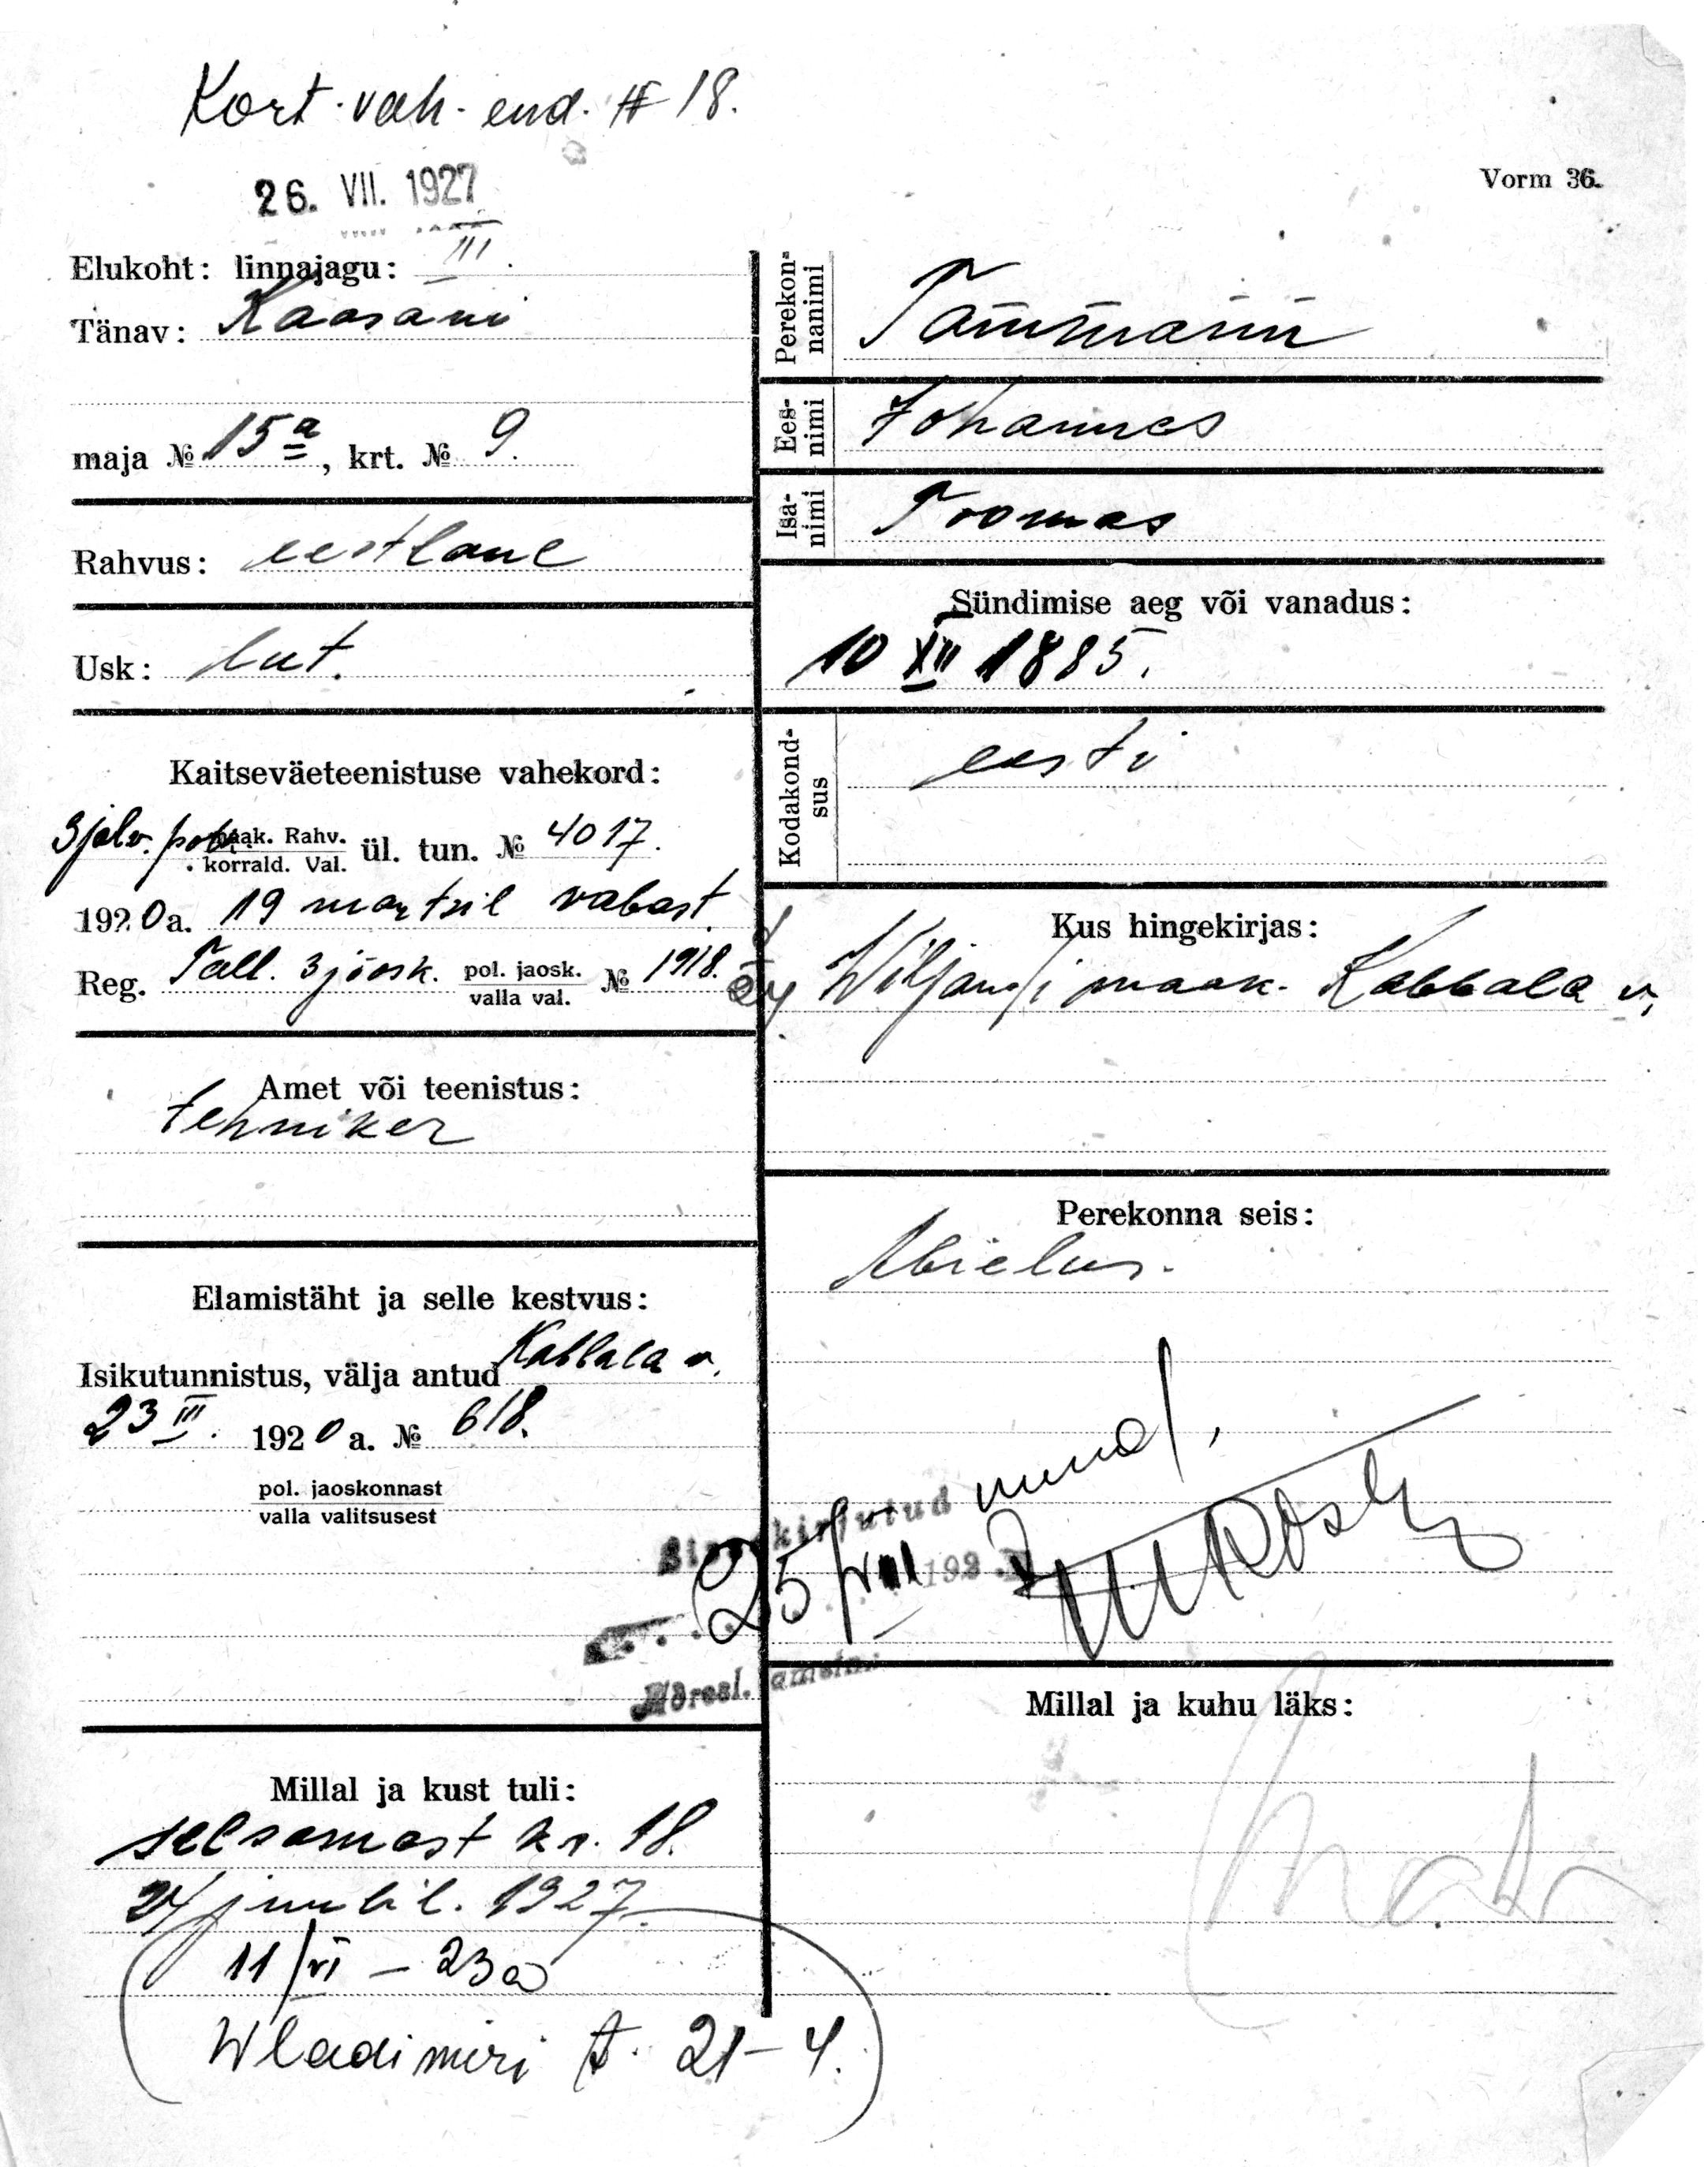 Kort. vah. end. # 18.
26. VII. 1927
Vorm 36.
Elukoht: linnajagu: III.
Tänav: Kaasani
maja № 15a, krt. № 9.
Rahvus: eestlane
Usk: lut.
Kaitseväeteenistuse vahekord:
3 jalv. polg.
maak. Rahv.
korrald. Val.
ül. tun. № 4017.
1920 a. 19 martsil vabast.
Reg. Tall. 3 jaosk. pol. jaosk. № 1918.
valla val.
Amet või teenistus:
tehniker
Elamistäht ja selle kestvus:
Isikutunnistus, välja antud Kabbala v.
23 III. 1920 a. № 618.
pol. jaoskonnast
valla valitsusest
Millal ja kust tuli:
sel samast kr. 18.
24 juulil. 1927.
11/VI – 23 a
Wladimiri t. 21–4.
Perekonnanimi
Tammann
Eesnimi
Johannes
Isanimi
Toomas
Sündimise aeg või vanadus:
10 XII 1885.
Kodakondsus
eesti
Kus hingekirjas:
Wiljandi maak. Kabbala v.
Perekonna seis:
Abielus.
Sissekirjutud
25/VII 192
Millal ja kuhu läks: